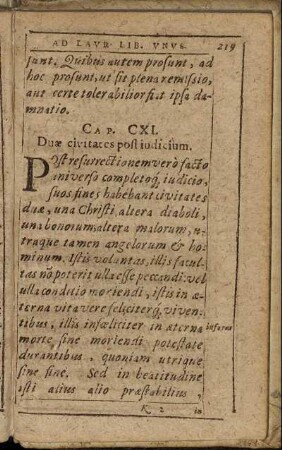 AD LAVR. LIB. VNVS. 219
sunt. Quibus autem prosunt, ad
hoc prosunt, ut sit plena remissio,
aut certe tolerabilior fiat ipsa da-
mnatio.
CAP. CXI.
Duæ civitates post iudicium.
POst resurrectionem verò facto
universo completoq; iudicio,
suos fines habebunt civitates
duæ, una Christi altera diaboli,
una bonorum altera malorum, u-
traque tamen angelorum & ho-
minum. Istis voluntas, illis facul-
tas nō poterit ulla esse peccandi: vel
ulla conditio moriendi, istis in æ-
terna vita vere feliciterq; viven-
tibus, illis infœliciter in æterna
morte, sine moriendi potestate
durantibus, quoniam utrique
sine fine. Sed in beatitudine
isti alius alio præstabilius,
K 2 in